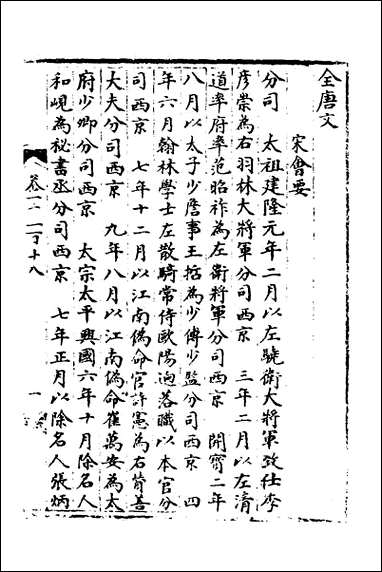 全唐文
宋會要
分司　太祖建隆元年二月以左驍衛大將軍致仕李
彥崇為右羽林大將軍分司西京　三年二月以左清
道率府率范昭祚為左衛將軍分司西京　開寶二年
八月以太子少詹事王格為少傅少監分司西京　四
年六月翰林學士左散騎常侍歐陽迥落職以本官分
司西京　七年十二月以江南偽命官許憲為右贊善
大夫分司西京　九年八月以江南偽命崔萬安為太
府少卿分司西京　太宗太平興國六年十月除名人
和峴為秘書丞分司西京　七年正月以除名人張炳
卷一二一丁十八
一